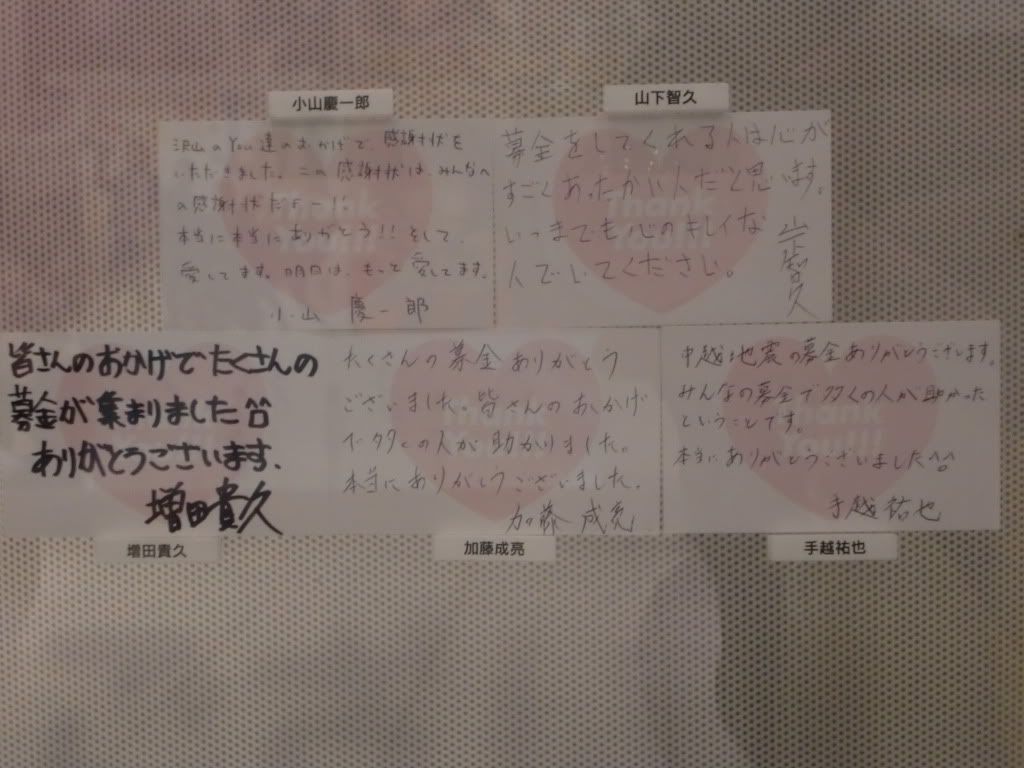 小山慶一郎
沢山のYou達のおかげで、感謝状を
いただきました。この感謝状は、みんなへ
の感謝状だF-!!
本当に本当にありがとう!!そして、
愛してます。明日は、もっと愛してます。
小山 慶一郎
山下智久
募金をしてくれる人は心が
すごくあったかい人だと思います。
いつまでも心のキレイな
人でいてください。
山下智久
Thank
You!!!
皆さんのおかげでたくさんの
募金が集まりました^^
ありがとうございます.
増田貴久
増田貴久
たくさんの募金ありがとう
ございました。皆さんのおかげ
で多くの人が助かりました。
本当にありがとうございました。
加藤 成亮
加藤成亮
中越地震の募金ありがとうございます。
みんなの募金で多くの人が助かった
ということです。
本当にありがとうございました^^
手越祐也
手越祐也